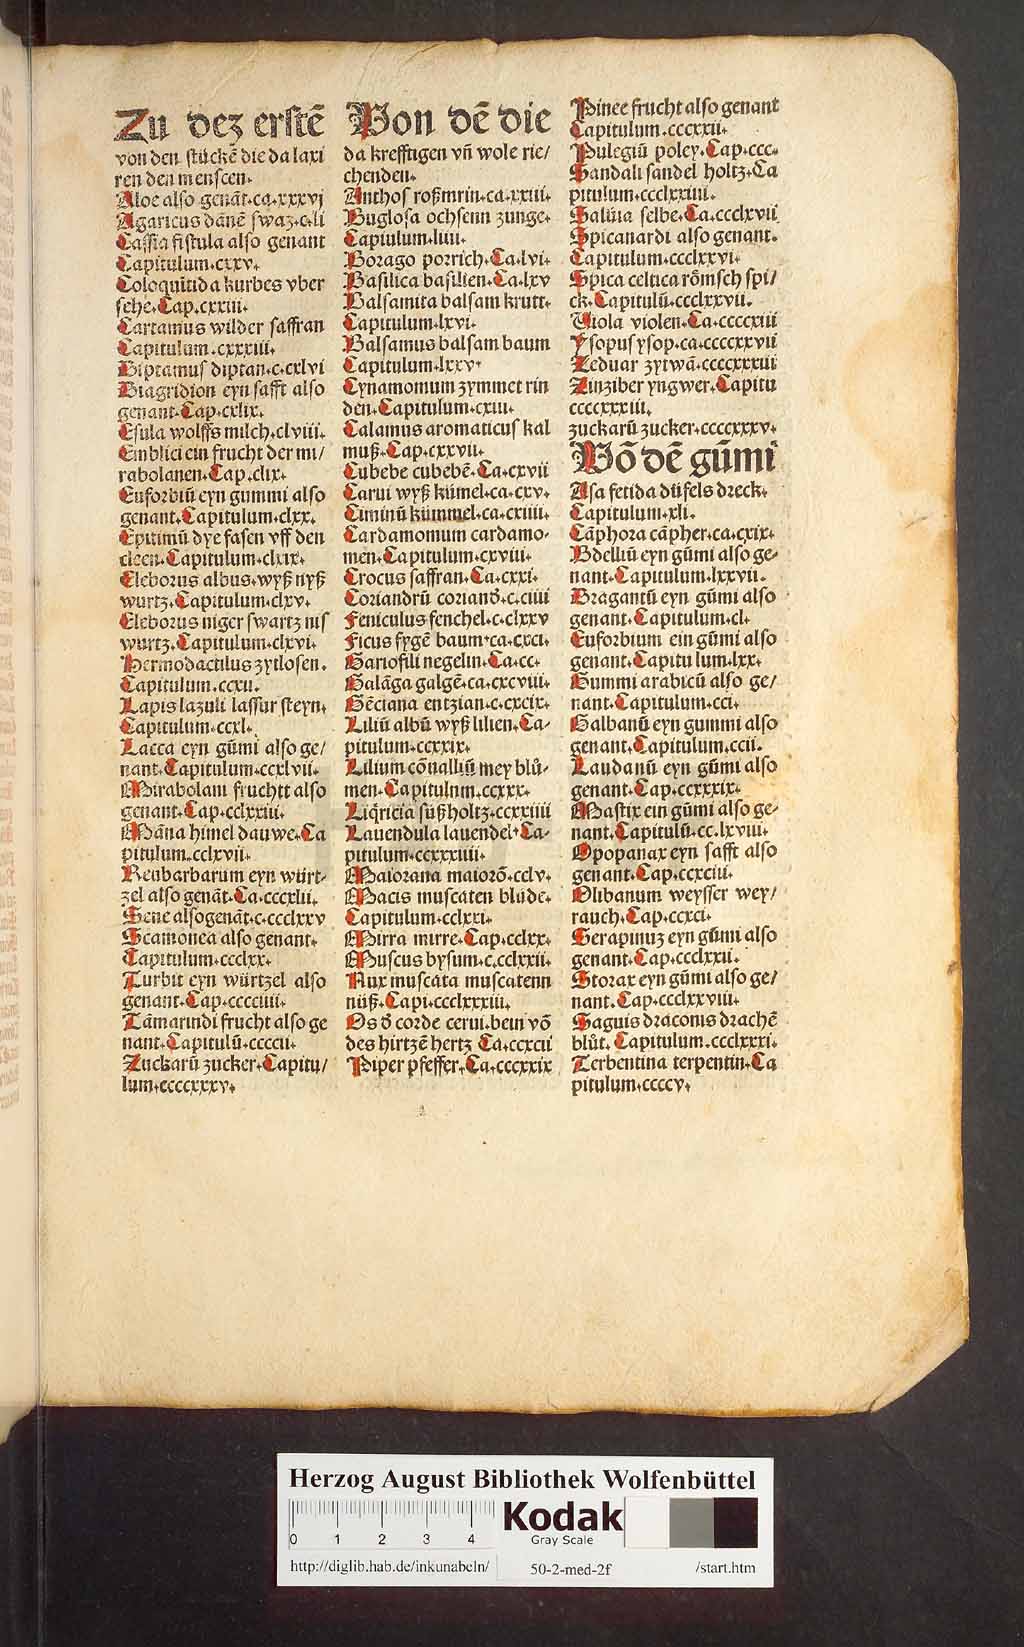 Zu dez erstē
von den stückē die da laxi
ren den menscen.
Aloe also genāt.ca.xxxvj
Agaricus dānē swaz.c.li
Cassia fistula also genant
Capitulum.cxxv.
Coloquītida kurbes vber
sehe.Cap.cxxiii.
Cartamus wilder saffran
Capitulum.cxxxiii.
Diptamus diptan.c.cxlvi
Diagridion eyn safft also
genant.Cap.cxlix.
Esula wolffs milch.clviii.
Emblici ein frucht der mi/
rabolanen.Cap.clix.
Euforbiū eyn gummi also
genant.Capitulum.clxx.
Epitimū dye fasen vff den
cleen.Capitulum.clxix.
Eleborus albus.wyß nyß
wurtz.Capitulum.clxv.
Eleborus niger swartz nis
wurtz.Capitulum.clxvi.
Hermodactilus zytlosen.
Capitulum.ccxii.
Lapis lazuli lassur steyn.
Capitulum.ccxl.
Lacca eyn gūmi also ge/
nant.Capitulum.ccxlvii.
Mirabolani fruchtt also
genant.Cap.cclxxiii.
Māna himel dauwe.Ca
pitulum.cclxvii.
Reubarbarum eyn würt-
zel also genāt.Ca.cccxlii.
Sene alsogenāt.c.ccclxxv
Scamonea also genant.
Capitulum.ccclxx.
Turbit eyn würtzel also
genant.Cap.cccciiii.
Tāmarindi frucht also ge
nant.Capitulū.ccccii.
Zuckarū zucker.Capitu/
lum.ccccxxxv.
Von dē die
da krefftigen vñ wole rie/
chenden.
Anthos roßmrin.ca.xxiii.
Buglosa ochsenn zunge.
Capiulum.liiii.
Borago porrich.Ca.lvi.
Basilica basilien.Ca.lxv
Balsamita balsam krutt.
Capitulum.lxvi.
Balsamus balsam baum
Capitulum.lxxv.
Cynamomum zymmet rin
den.Capitulum.cxiii.
Calamus aromaticus kal
muß.Cap.cxxvii.
Cubebe cubebē.Ca.cxvii
Carui wyß kümel.ca.cxv.
Ciminū kümmel.ca.cxiiii.
Cardamomum cardamo-
men.Capitulum.cxviii.
Crocus saffran.Ca.cxxi.
Coriandrū coriand̄.c.ciiii
Feniculus fenchel.c.clxxv
Ficus fygē baum.ca.cxci.
Gariofili negelin.Ca.cc.
Galāga galgē.ca.cxcviii.
Gēciana entzian.c.cxcix.
Liliū albū wyß lilien.Ca-
pitulum.ccxxix.
Lilium cōualliū mey blů-
men.Capitulnm.ccxxx.
Liq̄ricia süßholtz.ccxxiiii
Lauendula lauendel.Ca-
pitulum.ccxxxiiii.
Maiorana maiorō.cclv.
Macis muscaten blůde.
Capitulum.cclxxi.
Mirra mirre.Cap.cclxx.
Muscus bysum.c.cclxxii.
Nux muscata muscatenn
nüß.Capi.ccclxxxiii.
Os d̄ corde cerui.bein vō
des hirtzē hertz Ca.ccxcii
Piper pfeffer.Ca.cccxxix
Pinee frucht also genant
Capitulum.cccxxii.
Pulegiū poley.Cap.ccc.
Sandali sandel holtz.Ca
pitulum.ccclxxiiii.
Saluia selbe.Ca.ccclxvii
Spicanardi also genant.
Capitulum.ccclxxvi.
Spica celtica römsch spi/
ck.Capitulū.ccclxxvii.
Viola violen.Ca.ccccxiii
Ysopus ysop.ca.ccccxxvii
Zeduar zytwā.ccccxxxiii
Zinziber yngwer.Capitu
ccccxxxiii.
zuckarū zucker.ccccxxxv.
Vō dē gūmi
Asa fetida düfels dreck.
Capitulum.xli.
Cāphora cāpher.ca.cxix.
Bdelliū eyn gūmi also ge-
nant.Capitulum.lxxvii.
Dragantū eyn gūmi also
genant.Capitulum.cl.
Euforbium ein gūmi also
genant.Capitu lum.lxx.
Gummi arabicū also ge/
nant.Capitulum.cci.
Galbanū eyn gummi also
genant.Capitulum.ccii.
Laudanū eyn gūmi also
genant.Cap.ccxxxix.
Mastix ein gūmi also ge-
nant.Capitulū.cc.lxviii.
Opopanax eyn safft also
genant.Cap.ccxciii.
Olibanum weysser wey/
rauch.Cap.ccxci.
Serapinuz eyn gūmi also
genant.Cap.ccclxxii.
Storax eyn gūmi also ge/
nant.Cap.ccclxxviii.
Saguis draconis drachē
blůt. Capitulum.ccclxxxi.
Terbentina terpentin.Ca
pitulum.ccccv.
Herzog August Bibliothek Wolfenbüttel
0 1 2 3 4
Kodak
Gray Scale
http://diglib.hab.de/inkunabeln/ 50-2-med-2f /start.htm